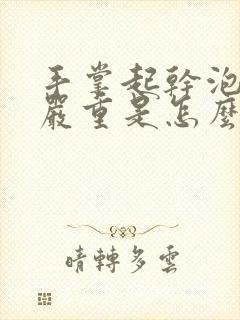 手掌起幹泡
嚴重是怎麼
晴轉多雲